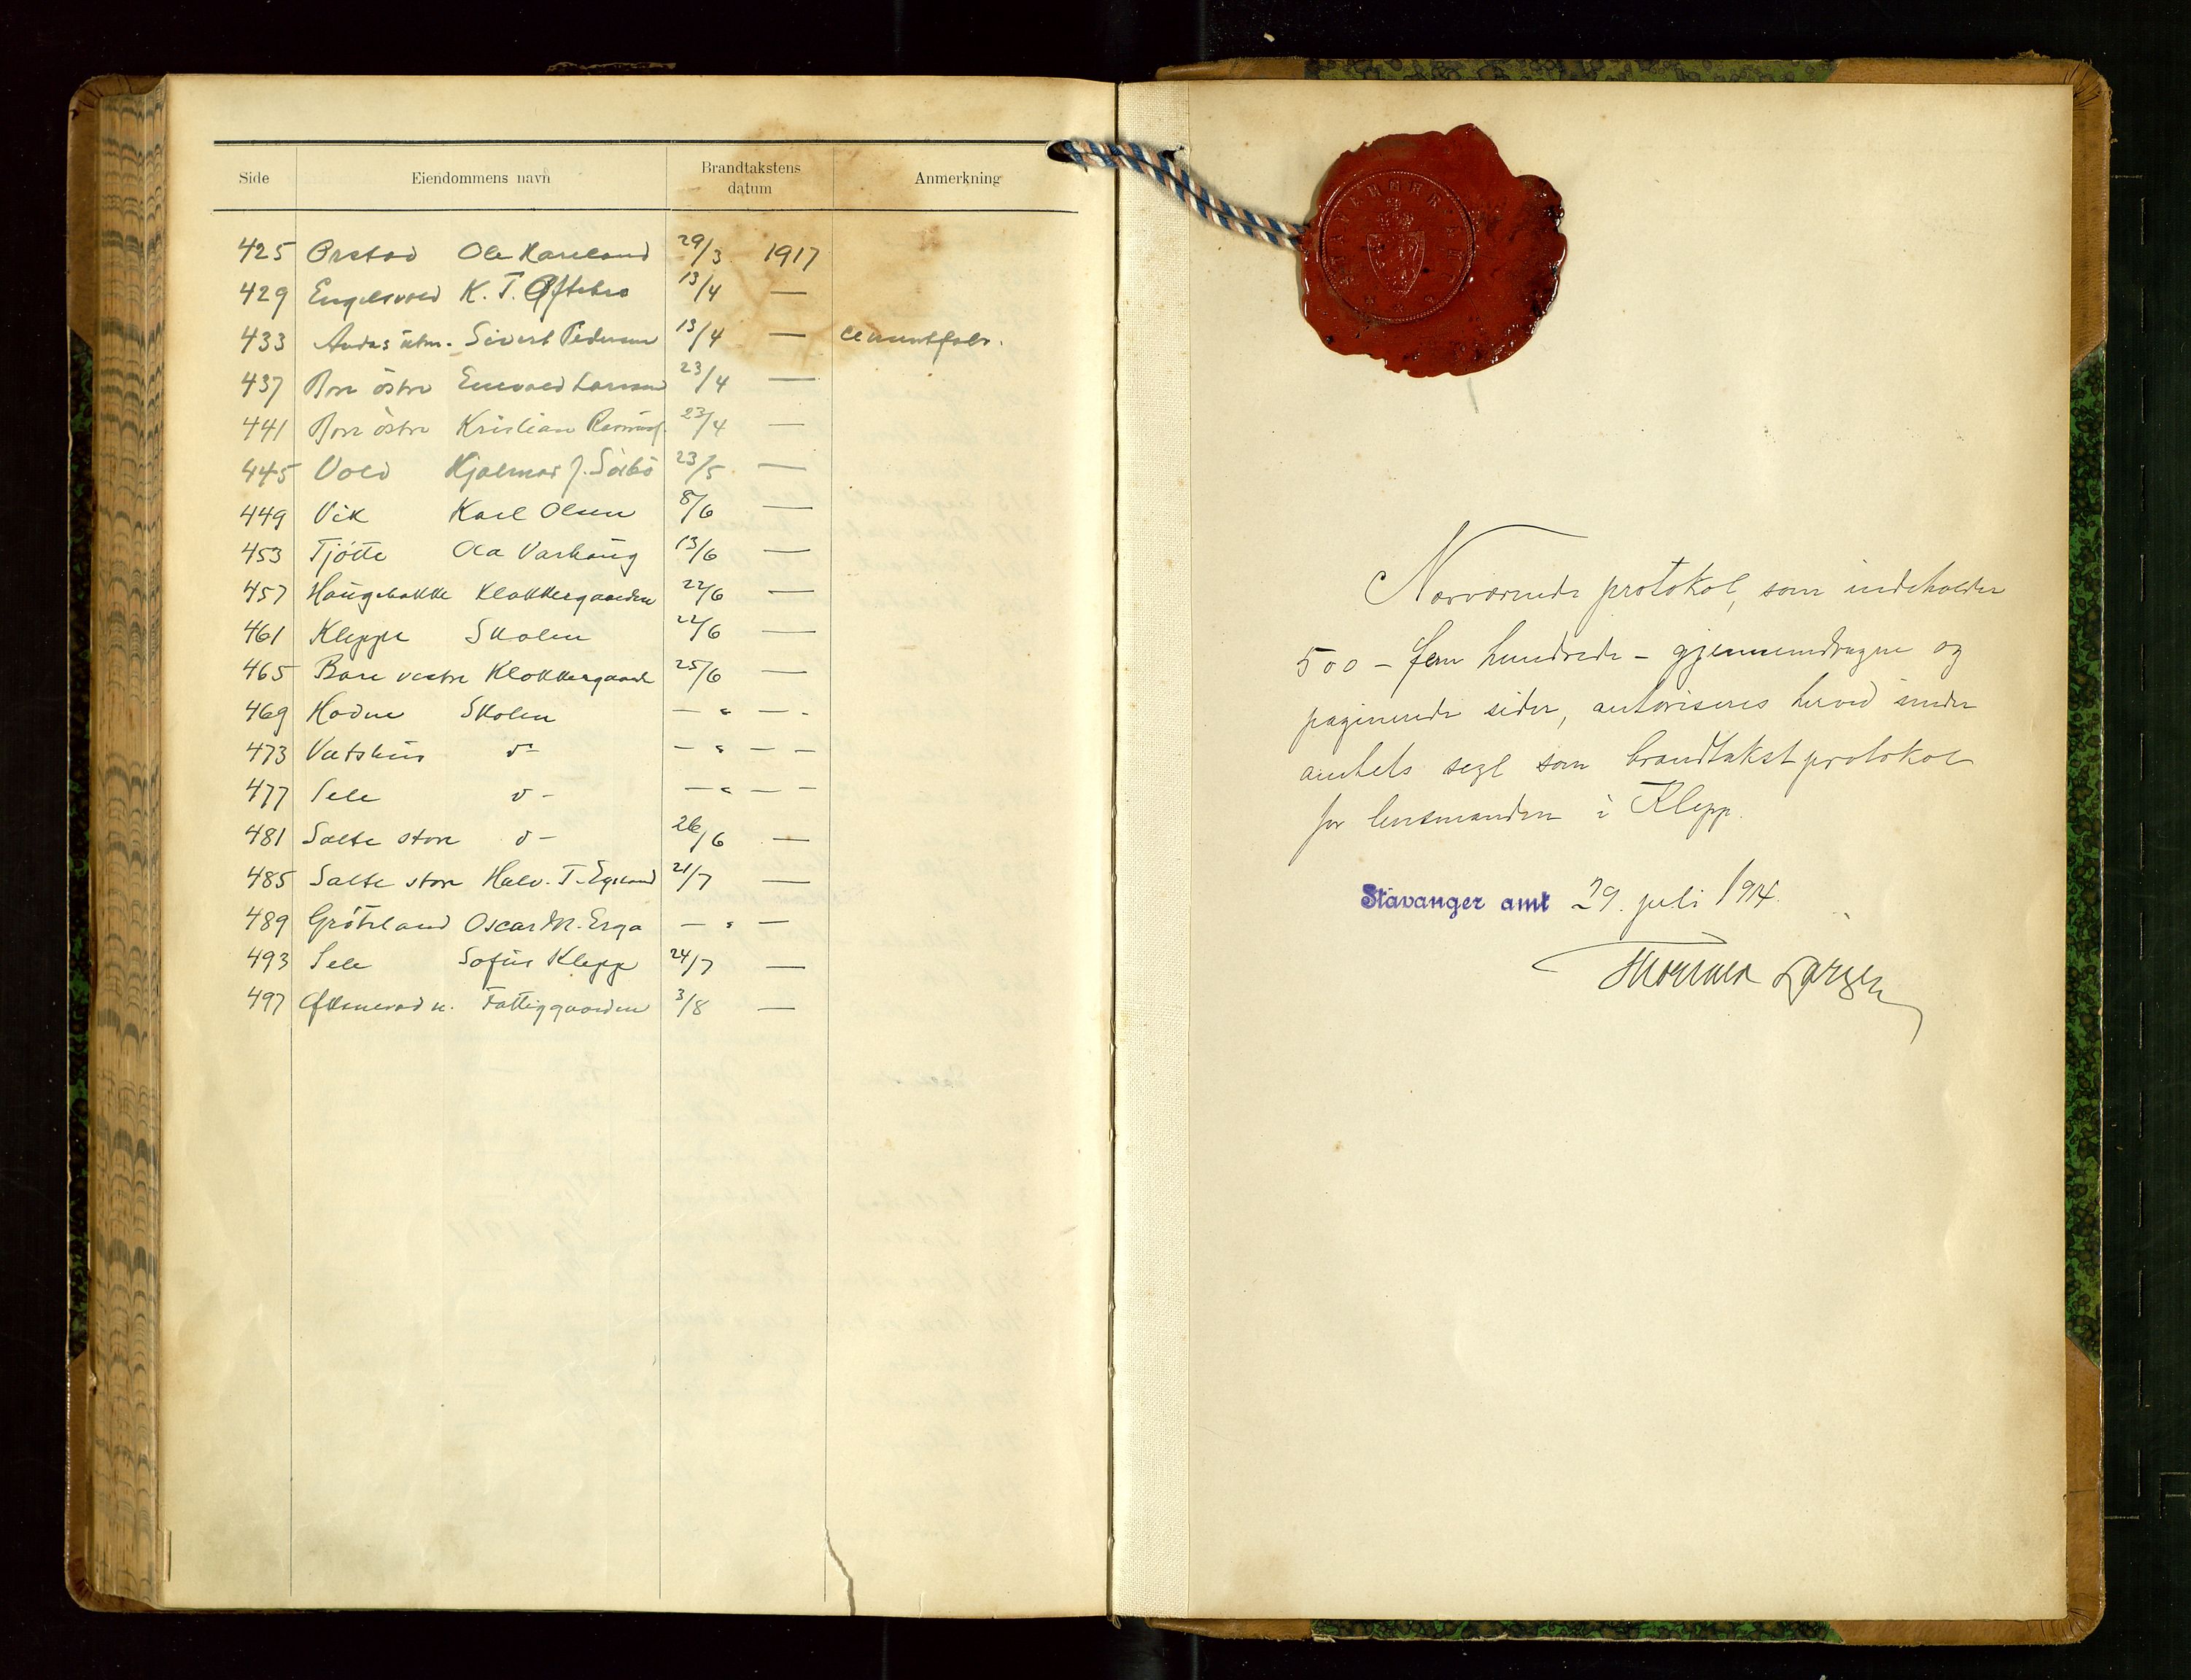 Side Eiendommens navn Brandtakstens datum Anmerkning
425 Orstad Ole Hareland 29/3 1917
429 Engelsvold K. T. Oftebro 13/4 —
433 Sivert Pedersen 13/4 — cementfabr.
437 Bore östre Enevald Larsen 23/4 —
441 Bore östre Kristian Rasmus. 23/4 —
445 Vold Hjalmar J. Sörbö 23/5 —
449 Vik Karl Olsen 8/6 —
453 Tjötte Ola Varhaug 13/6 —
457 Haugebakke Klokkergaarden 22/6 —
461 Kleppe Skolen 22/6 —
465 Bore vestre Klokkergaard 25/6 —
469 Hodne Skolen — " — -
473 Vatshus d- — " — —
477 Sele d- — " — —
481 Salte store d- 26/6 —
485 Salte store Halv. T. Egeland 21/7 —
489 Gröteland Oscar M. Erga — " —
493 Sele Sofus Klepp 24/7 —
497 n. Fattiggaarden 3/8 —
STAVANGER AMT
Nærværende protokol, som indeholder
500 - fem hundrede - gjennemdragne og
paginerede sider, autoriseres herved under
amtets segl som brandtakstprotokol
for lensmanden i Klepp.
Stavanger amt 29. juli 1914.